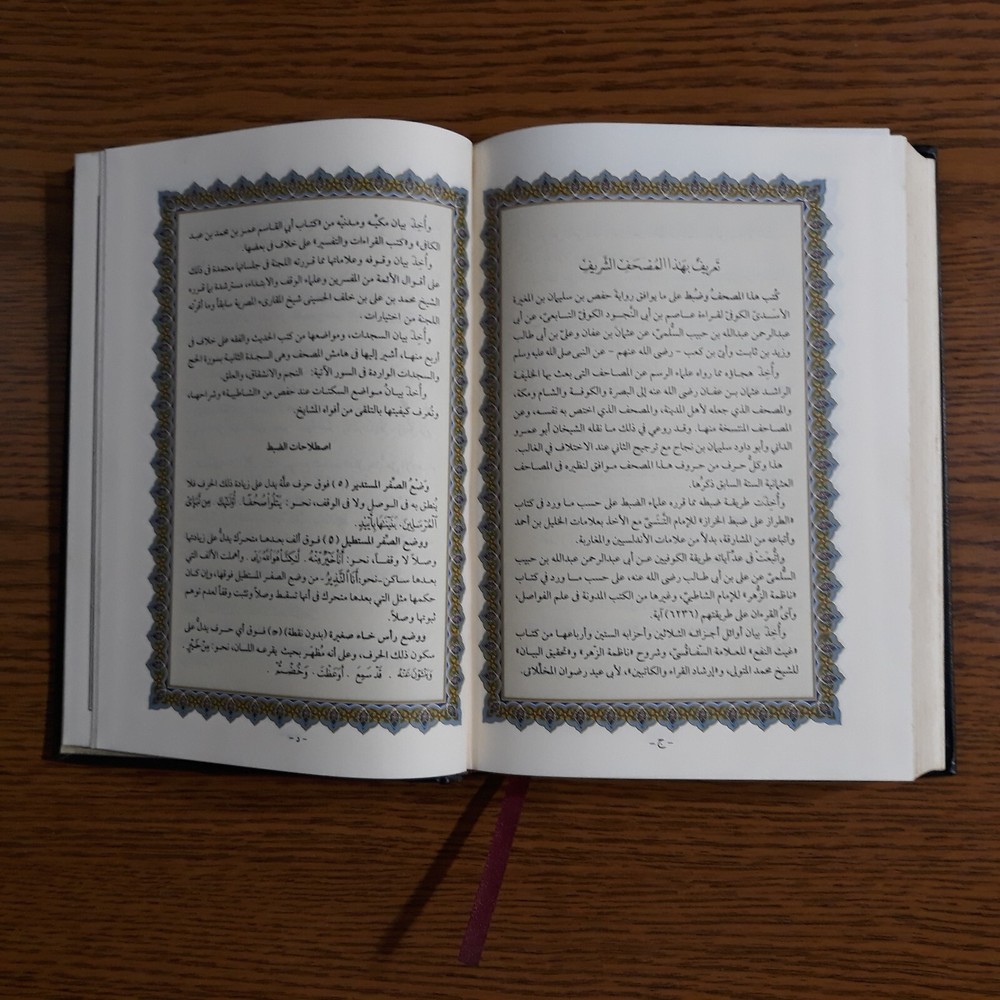 تعريف بهذا المصحف الشريف
كُتب هذا المصحفُ وضُبط على ما يوافق روايةَ حفص بن سليمان بن المغيرة
الأسَدىّ الكوفىّ لقراءة عاصم بن أبى النَّجود الكوفىّ التابعىّ، عن أبى
عبدالرحمن عبدالله بن حبيب السُّلَمىّ، عن عثمانَ بن عفان وعلىّ بن أبى طالب
وزيد بن ثابت وأبىّ بن كعب - رضى الله عنهم - عن النبى صلى الله عليه وسلم
وأُخِذَ هجاؤه مما رواه علماء الرسم عن المصاحف التى بعث بها الخليفة
الراشد عثمان بن عفان رضى الله عنه إلى البصرة والكوفة والشام ومكة،
والمصحف الذى جعله لأهل المدينة، والمصحف الذى اختص به نفسه، وعن
المصاحف المنتسخة منها. وقد روعي في ذلك ما نقله الشيخان أبو عمرو
الدانى وأبو داود سليمان بن نجاح مع ترجيح الثانى عند الاختلاف فى الغالب.
هذا وكلُّ حرف من حروف هذا المصحف موافق لنظيره فى المصاحف
العثمانية الستة السابق ذكرُها.
وأُخِذَت طريقة ضبطه مما قرره علماء الضبط على حسب ما ورد فى كتاب
«الطراز على ضبط الخراز» للإمام التَّنَسىّ مع الأخذ بعلامات الخليل بن أحمد
وأتباعه من المشارقة، بدلاً من علامات الأندلسيين والمغاربة.
واتُّبعَتْ فى عدّ آياته طريقة الكوفيين عن أبى عبدالرحمن عبدالله بن حبيب
السُّلَمىّ عن على بن أبى طالب رضى الله عنه، على حسب ما ورد فى كتاب
«ناظمة الزُّهْر» للإمام الشاطبىّ، وغيرها من الكتب المدونة فى علم الفواصل،
وآىُ القرءان على طريقتهم (٦٢٣٦) آية.
وأُخِذَ بيان أوائل أجزائه الثلاثين وأحزابه الستين وأرباعها من كتاب
«غيث النفع» للعلامة السَّفاقُسىّ، وشروح «ناظمة الزهر» و«تحقيق البيان»
للشيخ محمد المتولى، و«إرشاد القراء والكاتبين»، لأبى عيد رضوان المخللاتى.
- ج -
وأُخِذَ بيان مكيّه ومدنيّه من «كتاب أبى القاسم عمر بن محمد بن عبد
الكافى» و«كتب القراءات والتفسير» على خلاف فى بعضها.
وأُخِذَ بيان وقوفه وعلاماتها مما قررته اللجنة فى جلساتها معتمدة فى ذلك
على أقوال الأئمة من المفسرين وعلماء الوقف والابتداء، مسترشدة بما قرره
الشيخ محمد بن على بن خلف الحسينى شيخ المقارىء المصرية سابقاً وما أقرّته
اللجنة من اختيارات.
وأُخِذَ بيان السجدات، ومواضعها من كتب الحديث والفقه على خلاف فى
أربع منها، أشير إليها فى هامش المصحف وهى السجدة الثانية بسورة الحج
والسجدات الواردة فى السور الآتية: النجم والانشقاق، والعلق.
وأُخِذَ بيانُ مواضع السكتات عند حفص من «الشاطبية» وشراحها،
وتُعرف كيفيتها بالتلقى من أفواه المشايخ.
اصطلاحات الضبط
وَضعُ الصِّفر المستدير (٥) فوق حرف علَّة يدل على زيادة ذلك الحرف فلا
يُنطق به فى الوصل ولا فى الوقف، نحو: يَتْلُواْ صُحُفًا. أُوْلَٰٓئِكَ. مِن نَّبَإِىْ
ٱلْمُرْسَلِينَ. بَنَيْنَٰهَا بِأَيْيْدٍ.
ووضع الصِّفر المستطيل (0) فوق ألف بعدها متحرك يدلُّ على زيادتها
وصلاً لا وقفاً، نحو: أَنَا۠ خَيْرٌ مِّنْهُ. لَّٰكِنَّا۠ هُوَ ٱللَّهُ رَبِّى. وأهملت الألف التى
بعدها ساكن - نحو: أَنَا ٱلنَّذِيرُ - من وضع الصفر المستطيل فوقها، وإن كان
حكمها مثل التى بعدها متحرك فى أنها تسقط وصلاً وتثبت وقفاً لعدم توهم
ثبوتها وصلاً.
ووضع رأس خاء صغيرة (بدون نقطة) (ح) فوق أي حرف يدلُّ على
سكون ذلك الحرف، وعلى أنه مُظهَر بحيث يقرعه اللسان، نحو: مِنْ خَيْرٍ.
وَيَنْـَٔوْنَ عَنْهُ. قَدْ سَمِعَ. أَوَعَظْتَ. وَخُضْتُمْ.
- د -